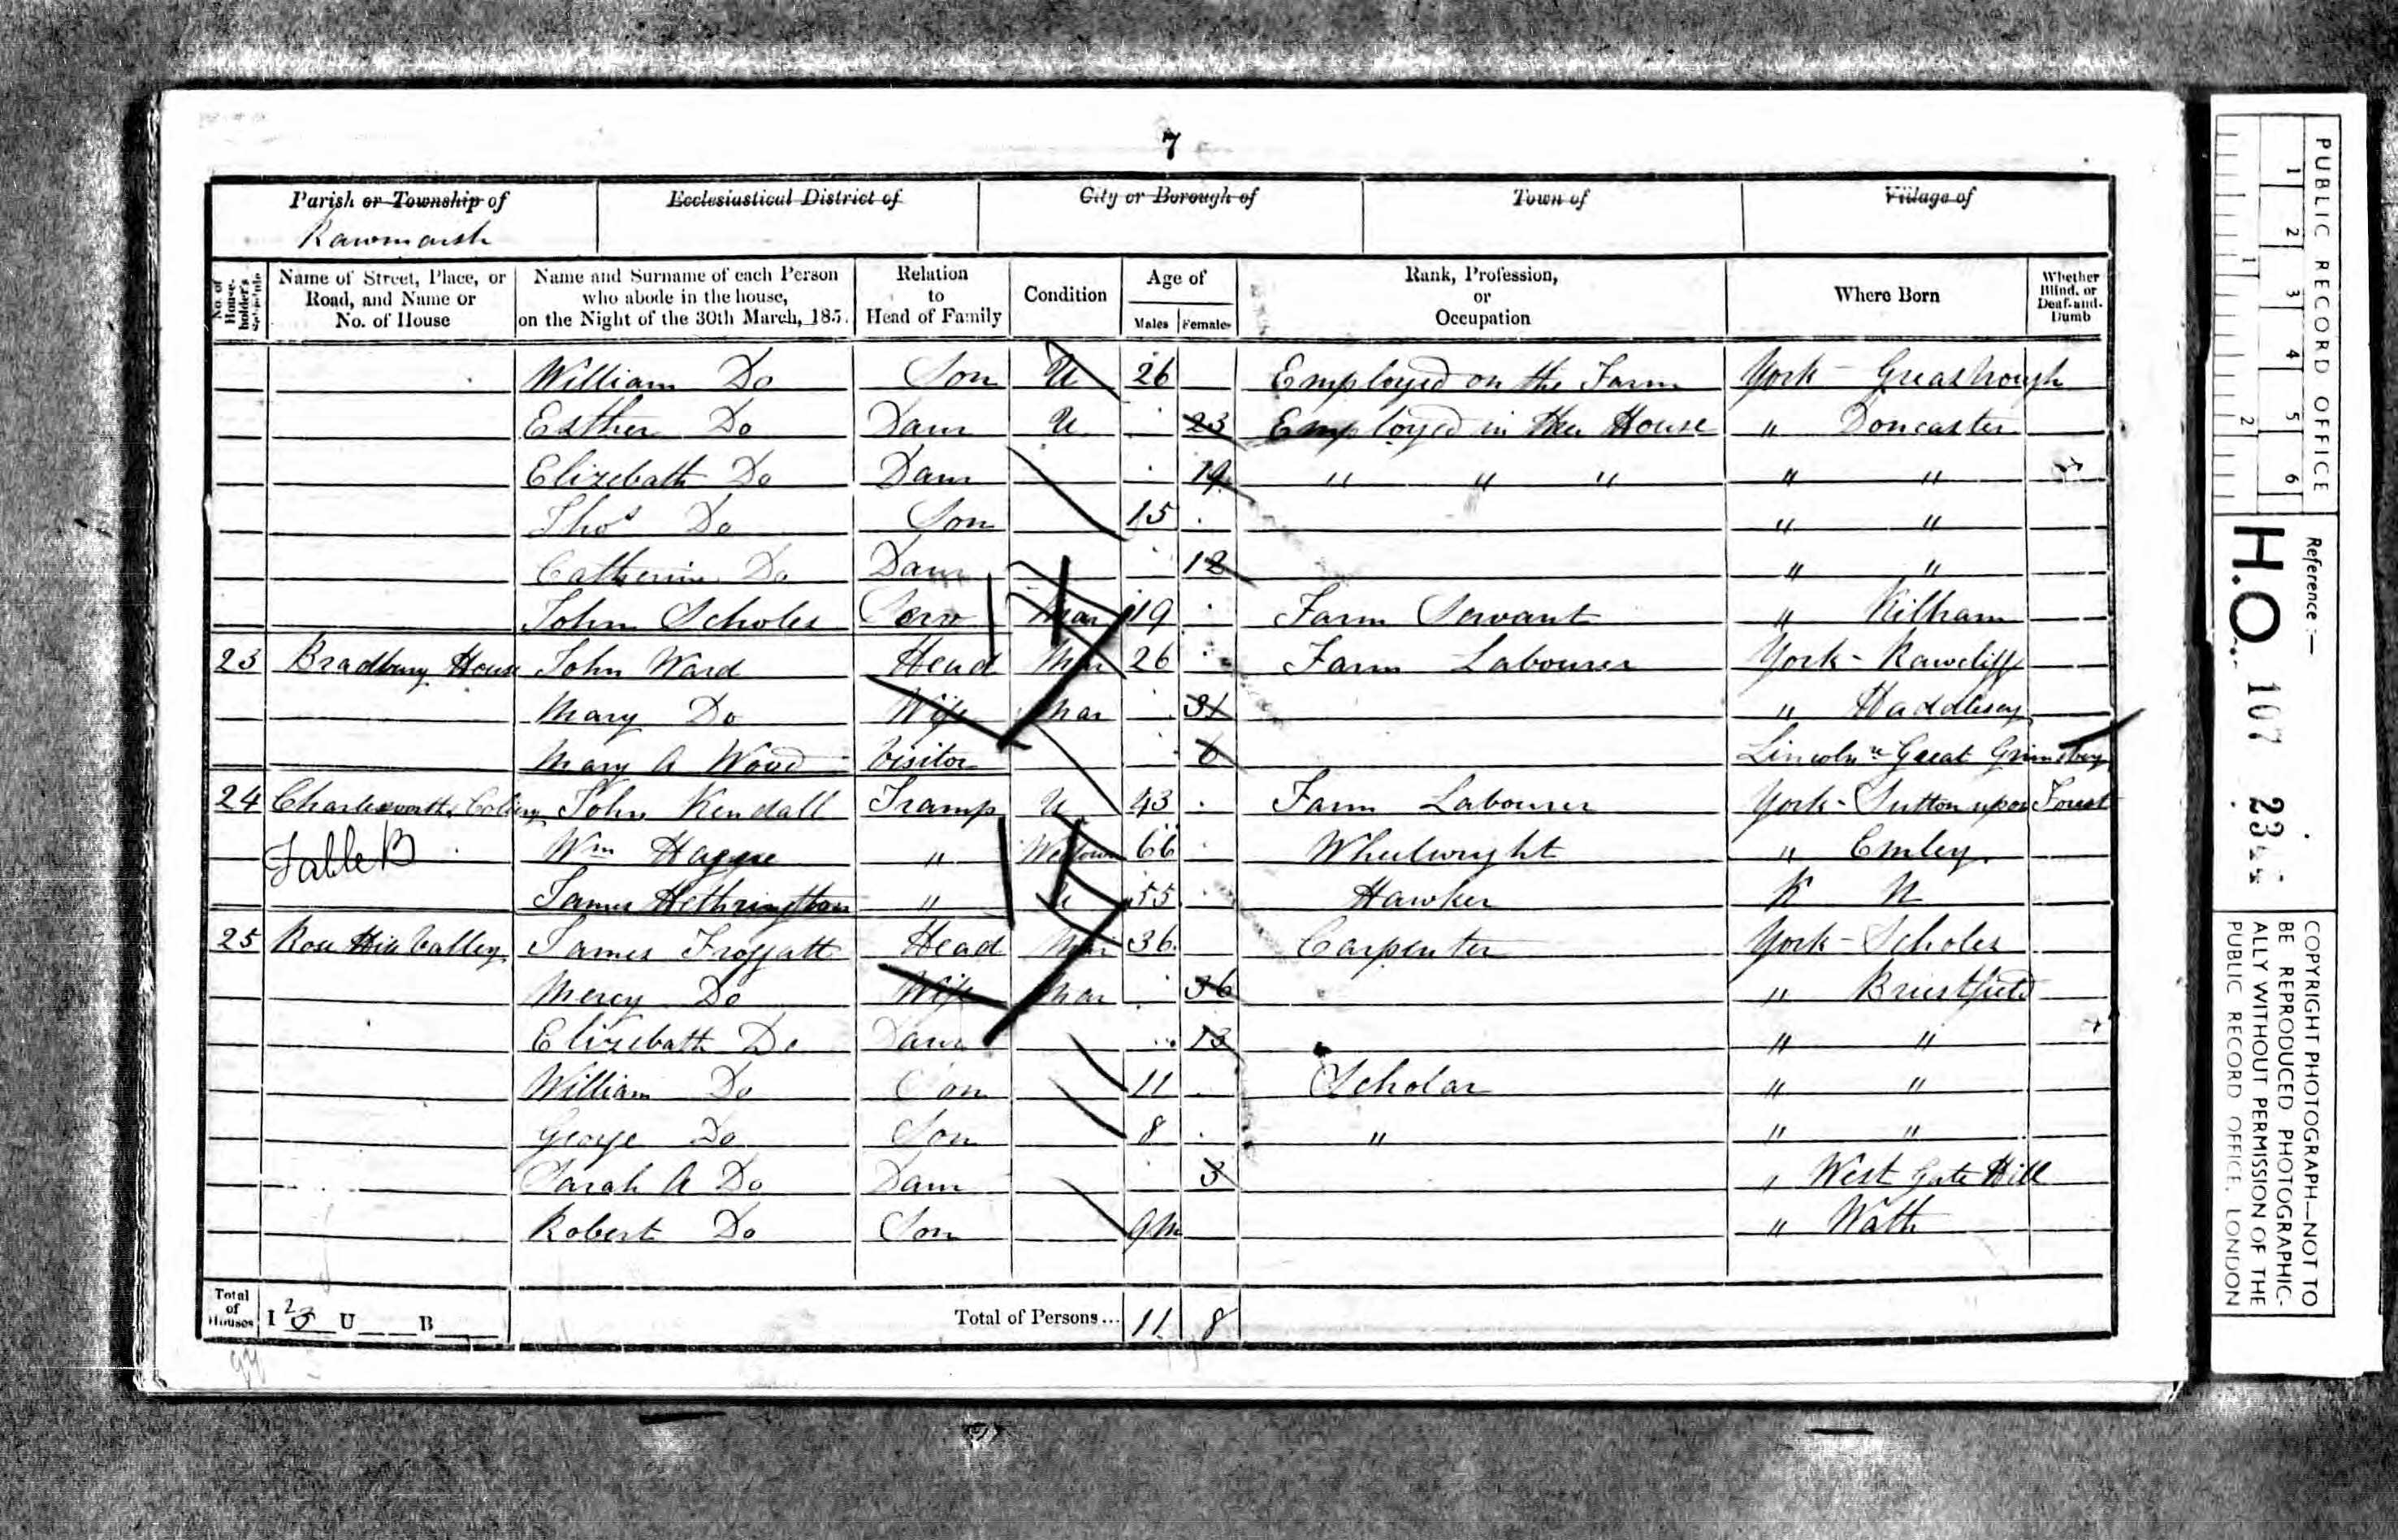 7
Parish or Township of Ecclesiastical District of City or Borough of Town of Village of
Rawmarsh
No. of House-holder's Schedule Name of Street, Place, or Road, and Name or No. of House Name and Surname of each Person who abode in the house, on the Night of the 30th March, 185. Relation to Head of Family Condition Age of Males Females Rank, Profession, or Occupation Where Born Whether Blind, or Deaf-and-Dumb
William Do Son U 26 Employed on the Farm York - Greasbrough
Esther Do Daur U 23 Employed in the House " Doncaster
Elizebath Do Daur 19 " " " " "
Thos Do Son 15 " "
Catherine Do Daur 12 " "
John Scholes Serv Mar 19 Farm Servant " Kilham
23 Bradbury House John Ward Head Mar 26 Farm Labourer York - Rawcliff
Mary Do Wife Mar 31 " Haddlesey
Mary A Wood Visitor 6 Lincoln Great Grimsbey
24 Charlesworth John Kendall Tramp U 43 Farm Labourer York - Sutton upon Forest
Table B Wm Hague " 66 Wheelwright " Emley
James Hethrington " U 55 Hawker N K
25 Rose Hill Valley James Froggatt Head Mar 36 Carpenter York - Scholes
Mercy Do Wife Mar 36 " Briestfield
Elizebath Do Daur 13 " "
William Do Son 11 Scholar " "
George Do Son 8 " " "
Sarah A Do Daur 3 " West Gate Hill
Robert Do Son 9m " Wath
Total of Houses I U B Total of Persons... 11 8
PUBLIC RECORD OFFICE
1 2 3 4 5 6
1 2
Reference :-
H.O. 107
COPYRIGHT PHOTOGRAPH—NOT TO
BE REPRODUCED PHOTOGRAPHIC-
ALLY WITHOUT PERMISSION OF THE
PUBLIC RECORD OFFICE, LONDON